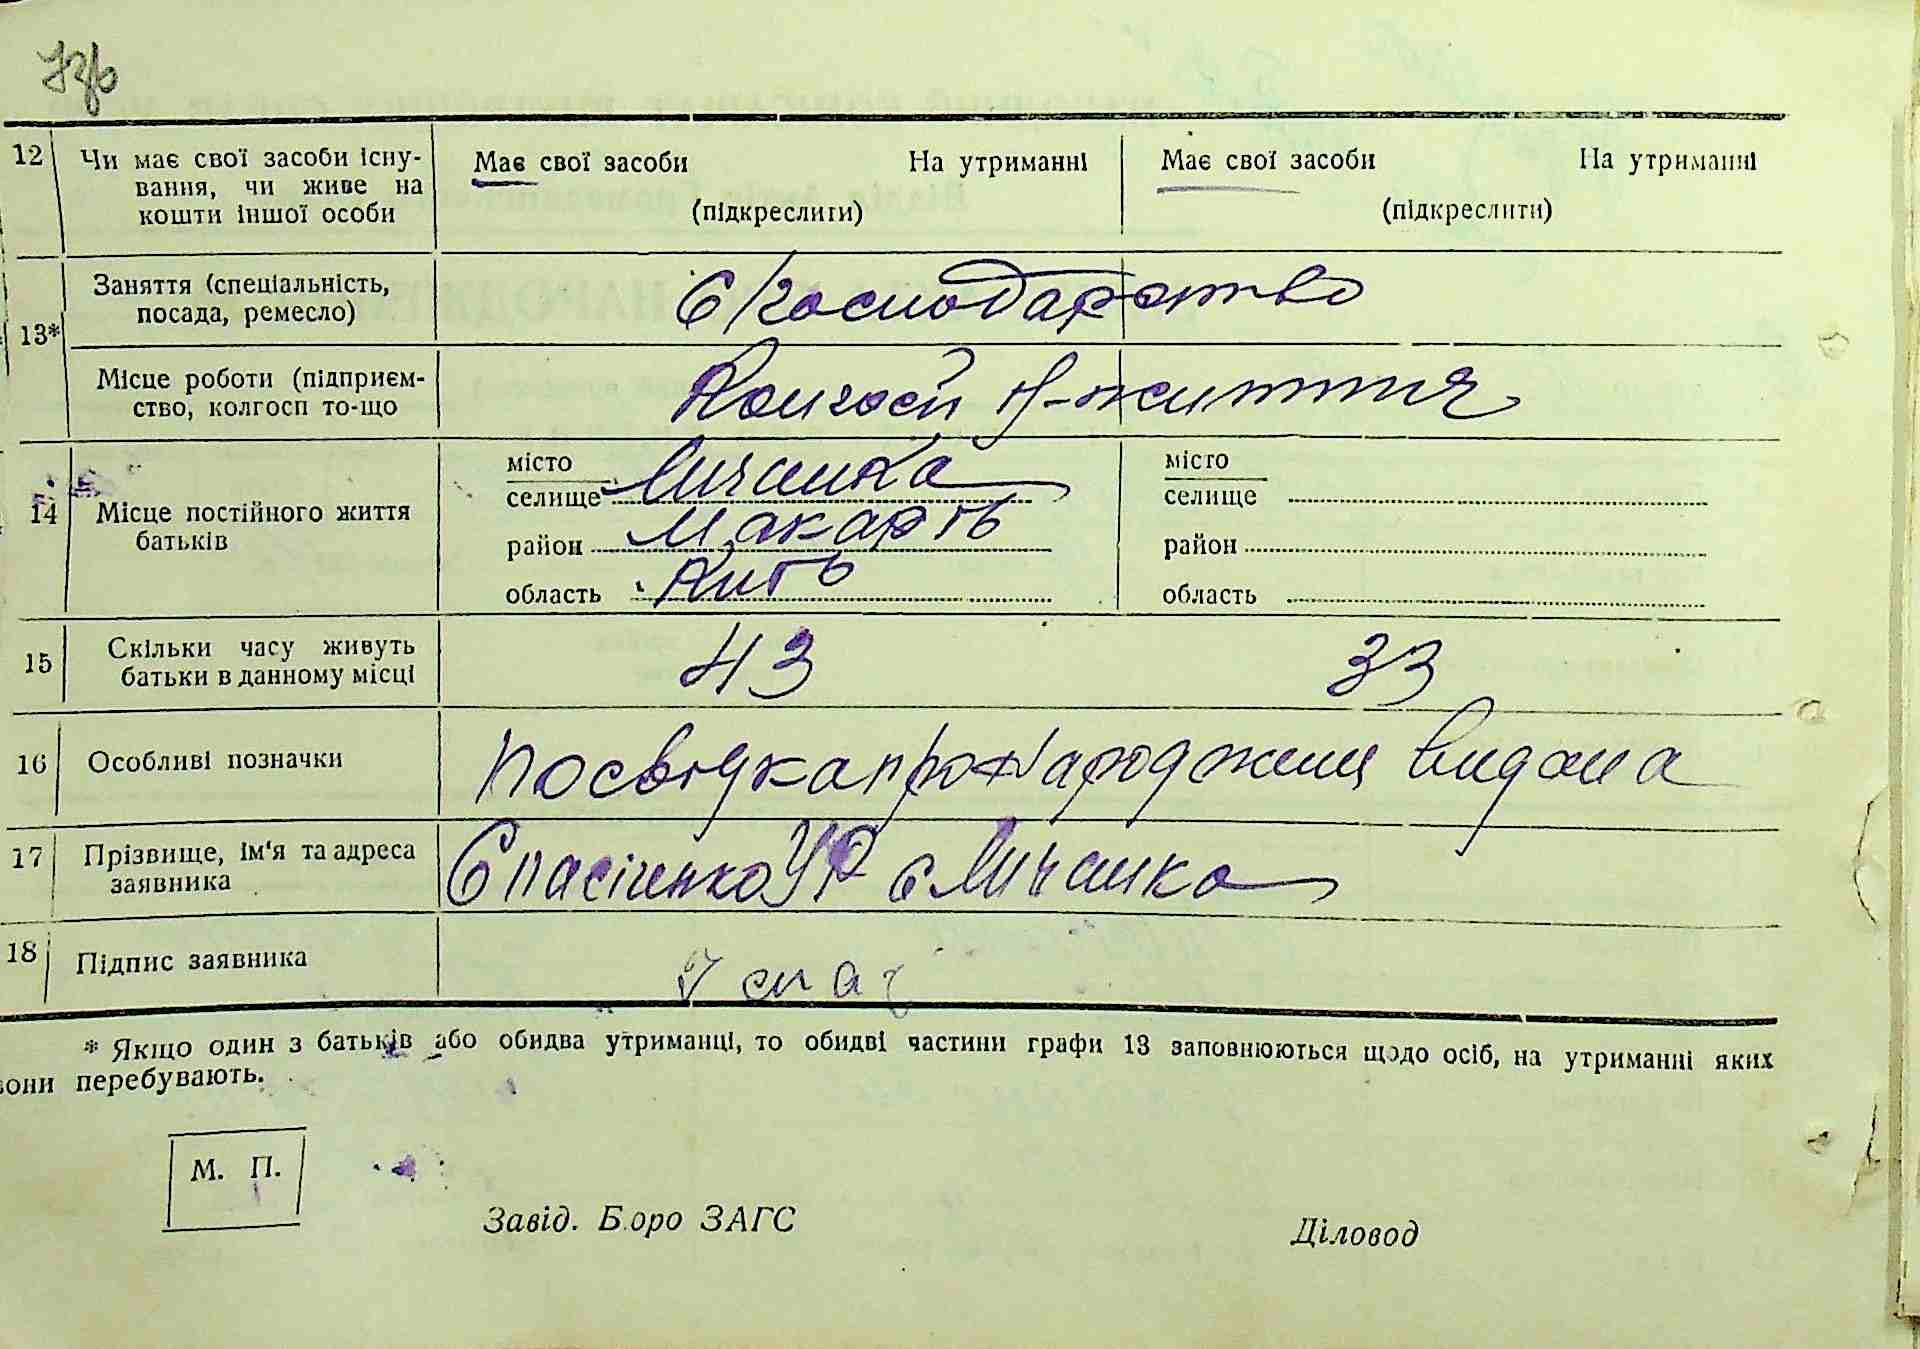 12 Чи має свої засоби існу-
вання, чи живе на
кошти іншої особи
Має свої засоби На утриманні
(підкреслити)
Має свої засоби На утриманні
(підкреслити)
13*
Заняття (спеціальність,
посада, ремесло)
С/господарство
Місце роботи (підприєм-
ство, колгосп то-що
Колгосп Н-життя
14 Місце постійного життя
батьків
місто
селище Личанка
район Макарів
область Київ
місто
селище
район
область
15 Скільки часу живуть
батьки в данному місці
43 33
16 Особливі позначки
Посвідка про народження видана
17 Прізвище, ім'я та адреса
заявника
Спасіченко УР с Личанка
18 Підпис заявника
* Якщо один з батьків або обидва утриманці, то обидві частини графи 13 заповнюються щодо осіб, на утриманні яких
вони перебувають.
М. П.
Завід. Бюро ЗАГС Діловод